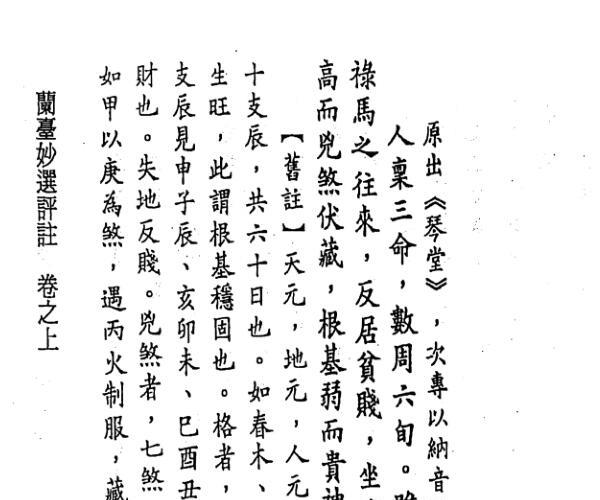 原出《琴堂》,次專以納音
人稟三命,數周六旬。
祿馬之往來,反居貧賤,坐
高而兇煞伏藏,根基弱而貴神
【舊註】天元,地元,人元
十支辰,共六十日也。如春木、
生旺,此謂根基穩固也。格者,
支辰見申子辰、亥卯未、巳酉丑
財也。失地反賤。兇煞者,七煞
如甲以庚為煞,遇丙火制服,藏
蘭臺妙選評註 卷之上